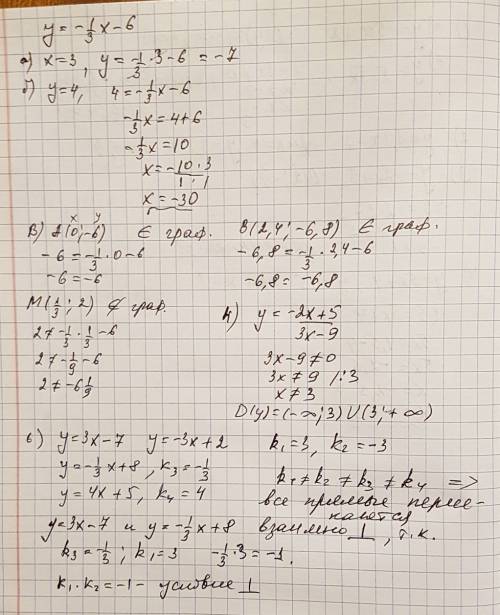 y = -1/3x - 6
а) x = 3, y = -1/3 · 3 - 6 = -7
б) y = 4, 4 = -1/3x - 6
-1/3x = 4 + 6
-1/3x = 10
x = -10 · 3 / 1 · 1
x = -30
x y
В) A(0; -6) ∈ граф.
-6 = -1/3 · 0 - 6
-6 = -6
B(2,4; -6,8) ∈ граф.
-6,8 = -1/3 · 2,4 - 6
-6,8 = -6,8
M(1/3; 2) ∉ граф.
2 ≠ -1/3 · 1/3 - 6
2 ≠ -1/9 - 6
2 ≠ -6 1/9
4) y = -2x + 5 / 3x - 9
3x - 9 ≠ 0
3x ≠ 9 /:3
x ≠ 3
D(y) = (-∞; 3) U (3; +∞)
6) y = 3x - 7 y = -3x + 2 k₁ = 3, k₂ = -3
y = -1/3x + 8, k₃ = -1/3
y = 4x + 5, k₄ = 4
k₁ ≠ k₂ ≠ k₃ ≠ k₄ =>
все прямые пересе-
каются
y = 3x - 7 и y = -1/3x + 8 взаимно ⊥, т.к.
k₃ = -1/3; k₁ = 3 -1/3 · 3 = -1.
k₁ · k₂ = -1 - условие ⊥